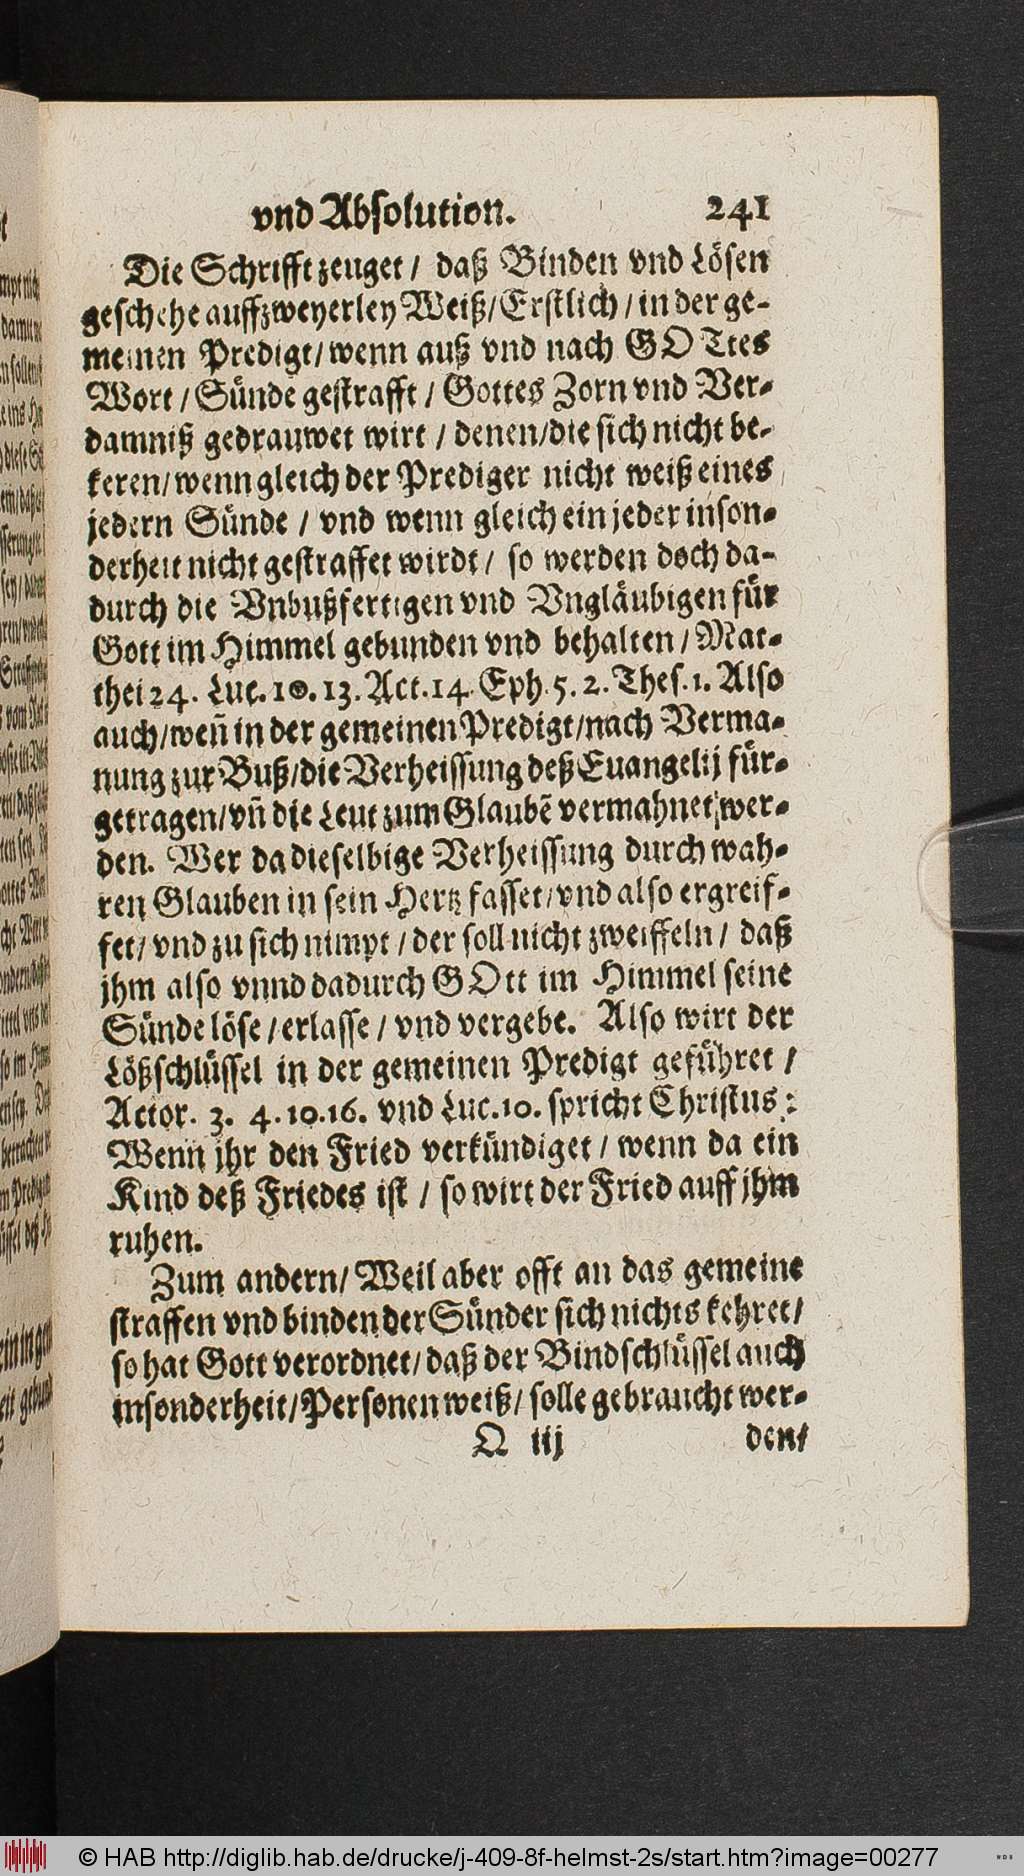 vnd Absolution. 241
Die Schrifft zeuget / daß Binden vnd Lösen
geschehe auff zweyerley Weiß / Erstlich / in der ge-
meinen Predigt / wenn auß vnd nach GOTtes
Wort / Sünde gestrafft / Gottes Zorn vnd Ver-
damniß gedrauwet wirt / denen / die sich nicht be-
keren / wenn gleich der Prediger nicht weiß eines
jedern Sünde / vnd wenn gleich ein jeder inson-
derheit nicht gestraffet wirdt / so werden doch da-
durch die Vnbußfertigen vnd Vngläubigen für
Gott im Himmel gebunden vnd behalten / Mat-
thei 24. Luc. 10. 13. Act. 14. Eph. 5. 2. Thes. 1. Also
auch / weñ in der gemeinen Predigt / nach Verma-
nung zur Buß / die Verheissung deß Euangelij für-
getragen / vñ die Leut zum Glaubẽ vermahnet wer-
den. Wer da dieselbige Verheissung durch wah-
ren Glauben in sein Hertz fasset / vnd also ergreif-
fet / vnd zu sich nimpt / der soll nicht zweiffeln / daß
jhm also vnnd dadurch GOtt im Himmel seine
Sünde löse / erlasse / vnd vergebe. Also wirt der
Lößschlüssel in der gemeinen Predigt geführet /
Actor. 3. 4. 10. 16. vnd Luc. 10. spricht Christus:
Wenn jhr den Fried verkündiget / wenn da ein
Kind deß Friedes ist / so wirt der Fried auff jhm
ruhen.
Zum andern / Weil aber offt an das gemeine
straffen vnd binden der Sünder sich nichts kehret /
so hat Gott verordnet / daß der Bindschlüssel auch
insonderheit / Personen weiß / solle gebraucht wer-
Q iij den /
© HAB http://diglib.hab.de/drucke/j-409-8f-helmst-2s/start.htm?image=00277